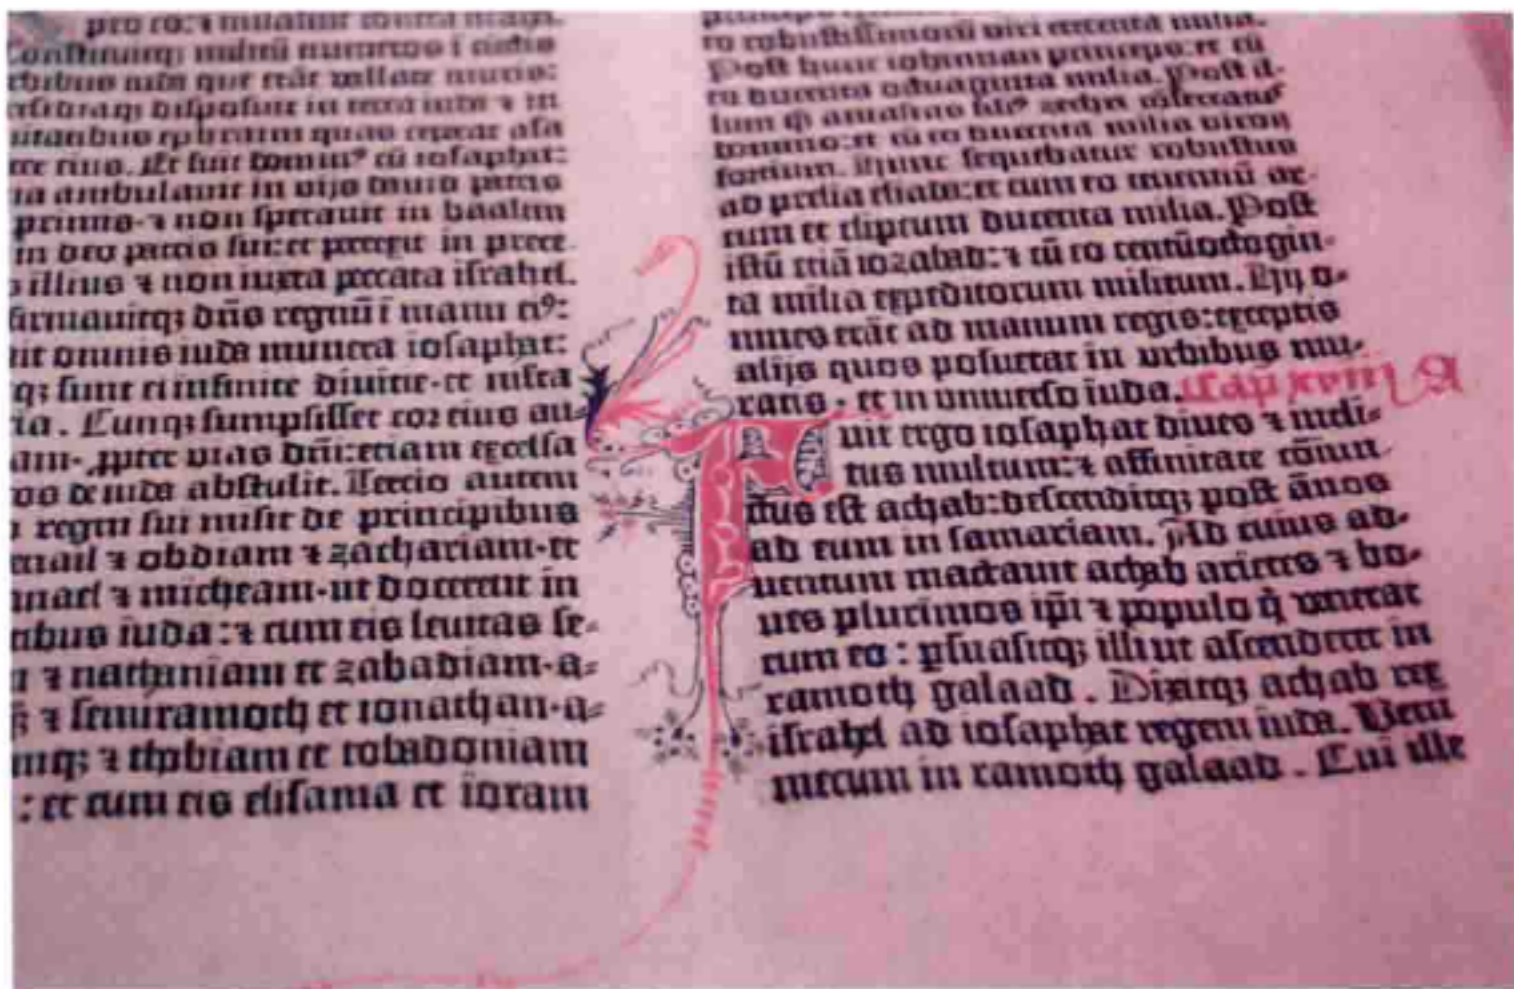 pro eo: ⁊ inualuit contra israhel.
Constituitq; militū numeros ī cūctis
vrbibus iuda que erāt vallate muris:
disposuit in terra iuda ⁊ in
ciuitatibus ephraim quas ceperat asa
eius. Et fuit dominꝰ cū iosaphat:
ia ambulauit in vijs dauid patris
primis. ⁊ non sperauit in baalim
in deo patris sui: et perrexit in prece-
illius ⁊ non iuxta peccata israhel.
firmauitq; dn̄s regnū ī manu eiꝰ:
it omnis iuda munera iosaphat:
q; sunt ei infinite diuicie. et multa
ia. Cunq; sumpsisset cor eius au-
am. ꝓpter vias dn̄i: etiam excelsa
os de iuda abstulit. Tercio autem
regni sui misit de principibus
⁊ obdiam ⁊ zachariam. et
anael ⁊ micheam. ut docerent in
tibus iuda: ⁊ cum eis leuitas se-
⁊ nathaniam et zabadiam. a-
⁊ semiramoth et ionathan. a-
mq; ⁊ thobiam et tobadoniam
: et cum eis elisama et ioram
ro robustissimorū viri trecenta milia.
Post hunc iohannan princeps: et cū
eo ducenta octuaginta milia. Post il-
lum q̄ amasias filꝰ zechri cōsecratꝰ
domino: et cū eo ducenta milia viroꝝ
fortium. Hunc sequebatur robustus
ad prelia eliada: et cum eo tenenciū ar-
cum et clipeum ducenta milia. Post
istū eciā iozabad: ⁊ cū eo centūoctogin-
ta milia expeditorum militum. Hij o-
mnes erāt ad manum regis: exceptis
alijs quos posuerat in urbibus mu-
ratis. et in vniuerso iuda. Cap̄. xviij A
Fuit ergo iosaphat diues ⁊ incli-
tus multum: ⁊ affinitate cōiun-
ctus est achab: descenditq; post ānos
ad eum in samariam. Ad cuius ad-
uentum mactauit achab arietes ⁊ bo-
ues plurimos ip̄i ⁊ populo q̇ venerat
cum eo: ꝑsuasitq; illi ut ascenderet in
ramoth galaad. Dixitq; achab rex
israhel ad iosaphat regem iuda. Veni
mecum in ramoth galaad. Cui ille